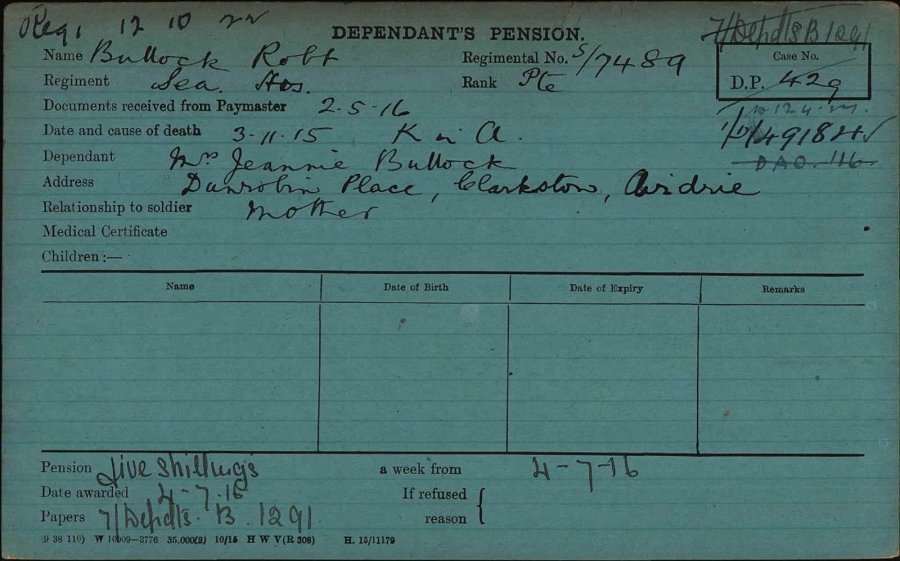 Reg. 12 10 22
DEPENDANT'S PENSION.
7/Depdts B 1291
Name Bullock Robt
Regimental No. S/7489
Case No.
D.P. 429
Regiment Sea. Hrs.
Rank Pte
Documents received from Paymaster 2-5-16
Date and cause of death 3-11-15 K in A.
D.A.O. 116
Dependant Mrs Jeannie Bullock
Address Dunrobin Place, Clarkston, Airdrie
Relationship to soldier Mother
Medical Certificate
Children :—
Name Date of Birth Date of Expiry Remarks
Pension five shillings a week from 4-7-16
Date awarded 4-7-16 If refused
Papers 7/Depdts. B. 1291. reason
(9 38 110) W 10909—3776 35,000(2) 10/15 H W V(R 308) H. 15/11179